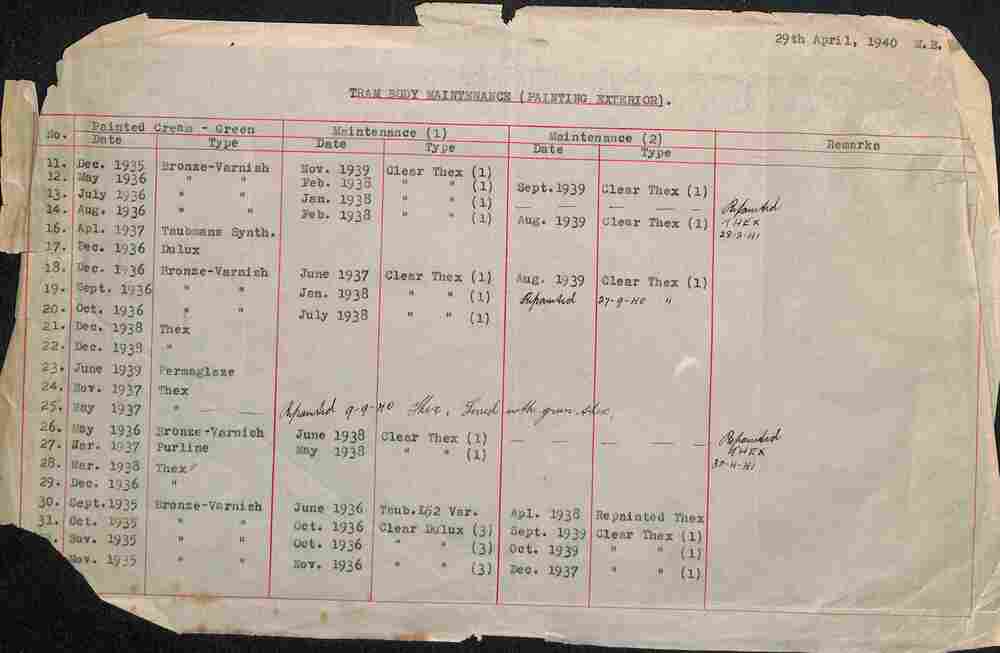 29th April, 1940 M.B.
TRAM BODY MAINTENANCE (PAINTING EXTERIOR).
No. Painted Cream - Green Maintenance (1) Maintenance (2) Remarks
Date Type Date Type Date Type
11. Dec. 1935 Bronze-Varnish Nov. 1939 Clear Thex (1)
12. May 1936 " " Feb. 1938 " " (1) Sept.1939 Clear Thex (1)
13. July 1936 " " Jan. 1938 " " (1) — — — — — Repainted
14. Aug. 1936 " " Feb. 1938 " " (1) Aug. 1939 Clear Thex (1) THEX
16. Apl. 1937 Taubmans Synth. 28-3-41
17. Dec. 1936 Dulux
18. Dec. 1936 Bronze-Varnish June 1937 Clear Thex (1) Aug. 1939 Clear Thex (1)
19. Sept. 1936 " " Jan. 1938 " " (1) Repainted 27-9-40 "
20. Oct. 1936 " " July 1938 " " (1)
21. Dec. 1938 Thex
22. Dec. 1938 "
23. June 1939 Permaglaze
24. Nov. 1937 Thex
25. May 1937 " — — Repainted 9-9-40 Thex, Lined with green
26. May 1936 Bronze-Varnish June 1938 Clear Thex (1) — — — — — Repainted
27. Mar. 1937 Purline May 1938 " " (1) THEX
28. Mar. 1938 Thex
29. Dec. 1936 "
30. Sept.1935 Bronze-Varnish June 1936 Taub. Var. Apl. 1938 Repainted Thex
31. Oct. 1935 " " Oct. 1936 Clear Dulux (3) Sept. 1939 Clear Thex (1)
Nov. 1935 " " Oct. 1936 " " (3) Oct. 1939 " " (1)
Nov. 1935 " " Nov. 1936 " " (3) Dec. 1937 " " (1)